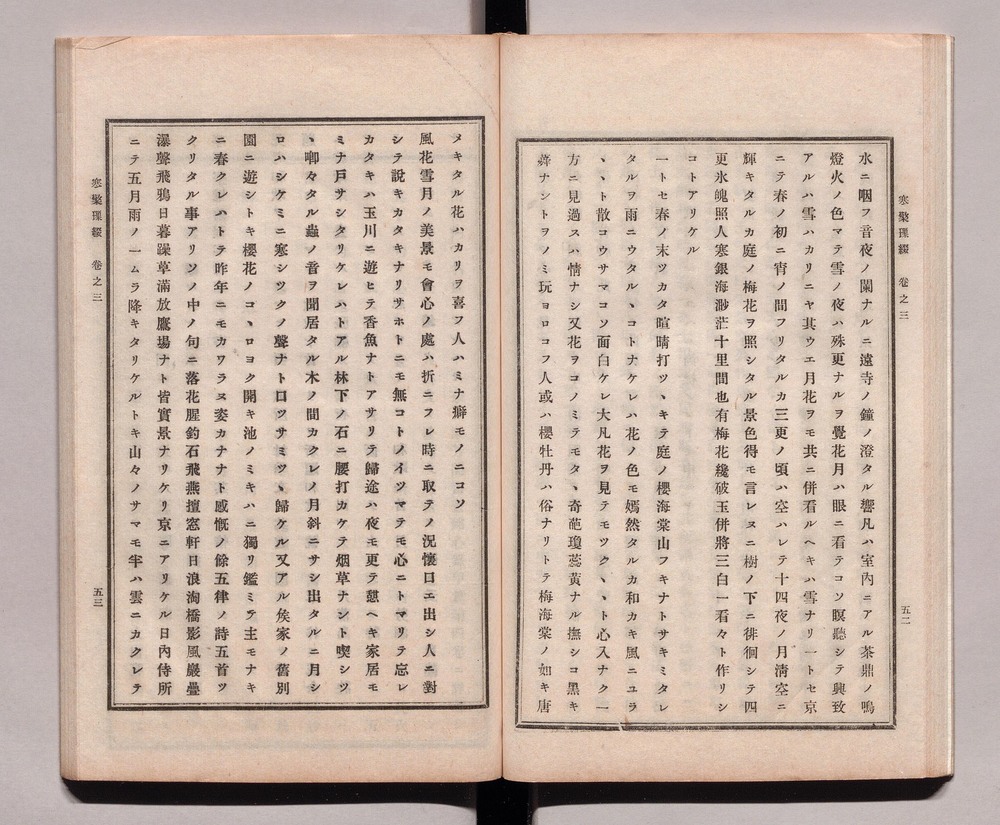 寒檠璅綴　卷之三
五二
水ニ咽フ音夜ノ闌ナルニ遠寺ノ鐘ノ澄タル響凡ハ室內ニアル茶鼎ノ鳴
燈火ノ色マテ雪ノ夜ハ殊更ナルヲ覺花月ハ眼ニ看テコソ瞑聽シテ興致
アルハ雪ハカリニヤ其ウエ月花ヲモ共ニ併看ルヘキハ雪ナリ一トセ京
ニテ春ノ初ニ宵ノ間フリタルカ三更ノ頃ハ空ハレテ十四夜ノ月淸空ニ
輝キタルカ庭ノ梅花ヲ照シタル景色得モ言レヌニ樹ノ下ニ徘徊シテ四
更氷魄照人寒銀海渺茫十里間也有梅花纔破玉併將三白一看々ト作リシ
コトアリケル
一トセ春ノ末ツカタ暄晴打ツヽキテ庭ノ櫻海棠山フキナトサキミタレ
タルヲ雨ニウタルヽコトナケレハ花ノ色モ嫣然タルカ和カキ風ニユラ
ヽヽト散コウサマコソ面白ケレ大凡花ヲ見テモツクヽヽト心入ナク一
方ニ見過スハ情ナシ又花ヲコノミテモタヽ奇葩瓊蕊黃ナル撫シコ黑キ
蕣ナントヲノミ玩ヨロコフ人或ハ櫻牡丹ハ俗ナリトテ梅海棠ノ如キ唐
メキタル花ハカリヲ喜フ人ハミナ癖モノニコソ
風花雪月ノ美景モ會心ノ處ハ折ニフレ時ニ取テノ況懷口エ出シ人ニ對
シテ說キカタキナリサホトニモ無コトノイツマテモ心ニトマリテ忘レ
カタキハ玉川ニ遊ヒテ香魚ナトアサリテ歸途ハ夜モ更テ憩ヘキ家居モ
ミナ戶サシタリケレハトアル林下ノ石ニ腰打カケテ烟草ナント喫シツ
ヽ喞々タル蟲ノ音ヲ聞居タル木ノ間カクレノ月斜ニサシ出タルニ月シ
ロハシケミニ寒シツクノ聲ナト口ツサミツヽ歸ケル又アル矦家ノ舊別
園ニ遊シトキ櫻花ノコヽロヨク開キ池ノミキハニ獨リ鑑ミテ主モナキ
ニ春クレハトテ昨年ニモカワラヌ姿カナナト感慨ノ餘五律ノ詩五首ツ
クリタル事アリソノ中ノ句ニ落花腥釣石飛燕擅窓軒日浪洶橋影風巖疊
瀑聲飛鴉日暮躁草滿放鷹場ナト皆實景ナリケリ京ニアリケル日內侍所
ニテ五月雨ノ一ムラ降キタリケルトキ山々ノサマモ半ハ雲ニカクレテ
寒檠璅綴　卷之三
五三